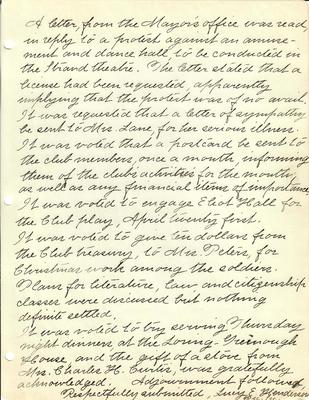 A letter, from the Mayor's office was read,
in reply to a protest against an amuse-
ment and dance hall, to be conducted in
the Strand theatre. The letter stated that a
license had been requested, apparently
implying that the protest was of no avail.
It was requested that a letter of sympathy
be sent to Mrs. Lane, for her serious illness.
It was voted that a postcard be sent to
the club members, once a month, informing
them of the clubs activities for the month,
as well as any financial items of importance.
It was voted to engage Eliot Hall for
the Club play, April twenty first.
It was voted to give ten dollars from
the Club treasury, to Mrs. Peters, for
Christmas work among the soldiers.
Plans for literature, law, and citizenship
classes were discussed but nothing
definite settled.
It was voted to try serving Thursday
night dinners, at the Loring-Greenough
House, and the gift of a stove from
Mrs. Charles H. Curtis, was gratefully
acknowledged. Adjournment followed.
Respectfully submitted, Lucy E. Henderson